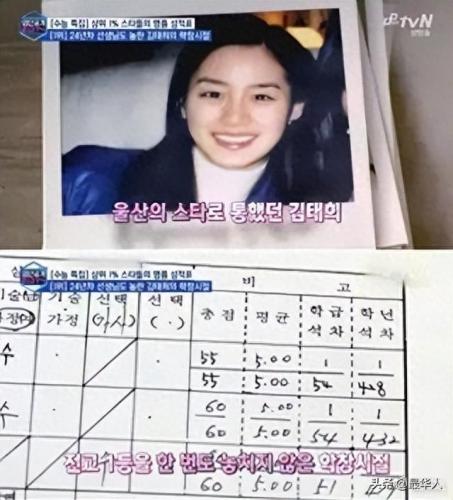 [수능 특집] 상위 1% 스타들의 명품 성적표
[1위] 24년차 선생님도 놀란 김태희의 학창시절
tvN
울산의 스타로 통했던 김태희
[수능 특집] 상위 1% 스타들의 명품 성적표
[1위] 24년차 선생님도 놀란 김태희의 학창시절
비 고
기술 가정
선택 (가사)
선택 ( . )
총점
평균
학급 석차
학년 석차
수
55 5.00 1 1
55 5.00 54 428
수
60 5.00 1 1
60 5.00 54 432
전교 1등을 한 번도 놓치지 않은 학창시절
60 5.00
头条 @最华人